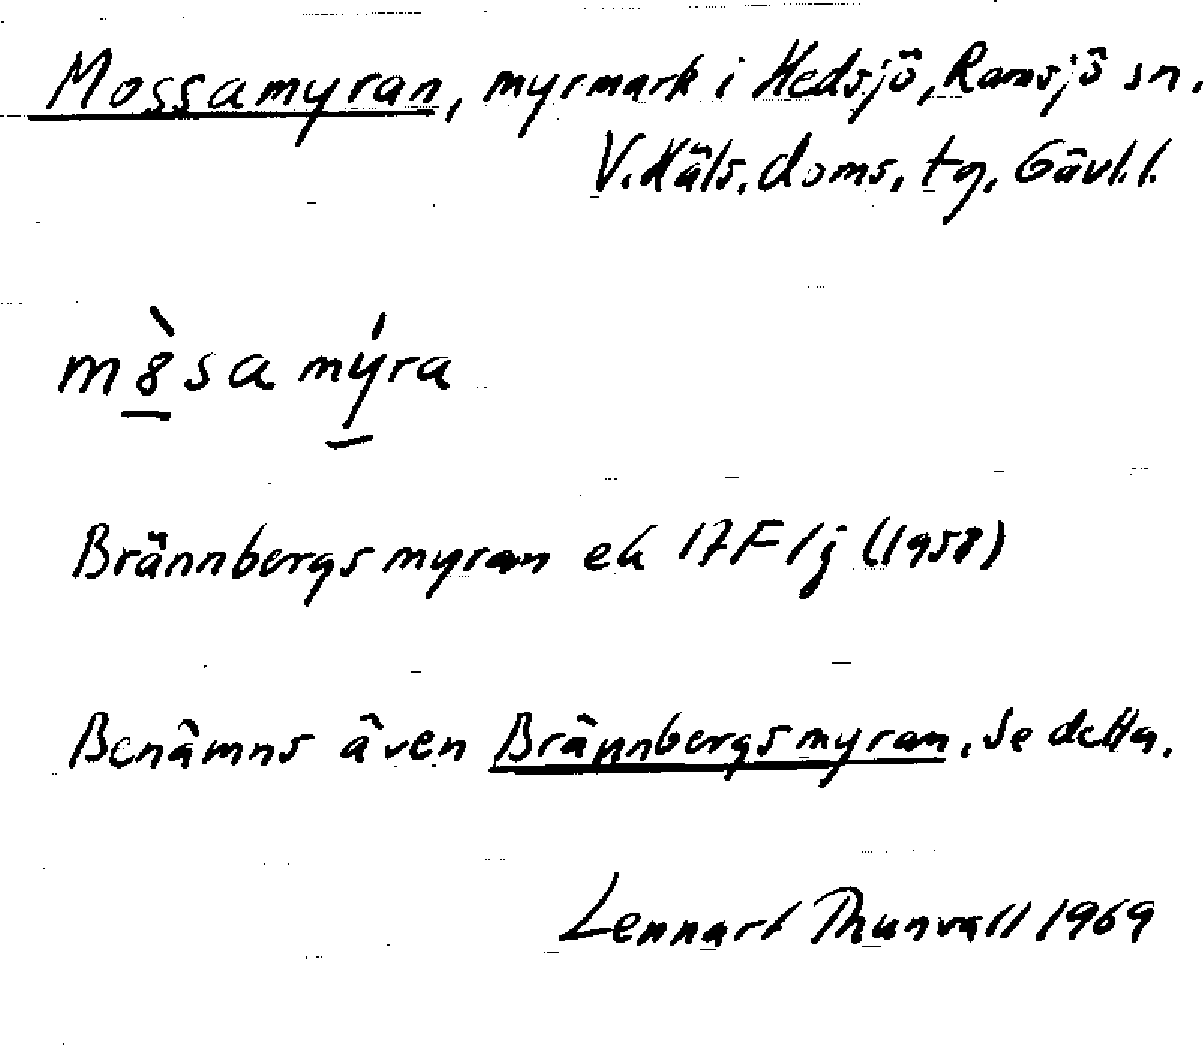 Mossamyran, myrmark i Hedsjö, Ramsjö sn.
V. Häls. doms. tg, Gävl.l.
m8̀sa mýra
Brännbergsmyran ek 17F 1j (1958)
Benämns även Brännbergsmyran. Se detta.
Lennart Thunvall 1969